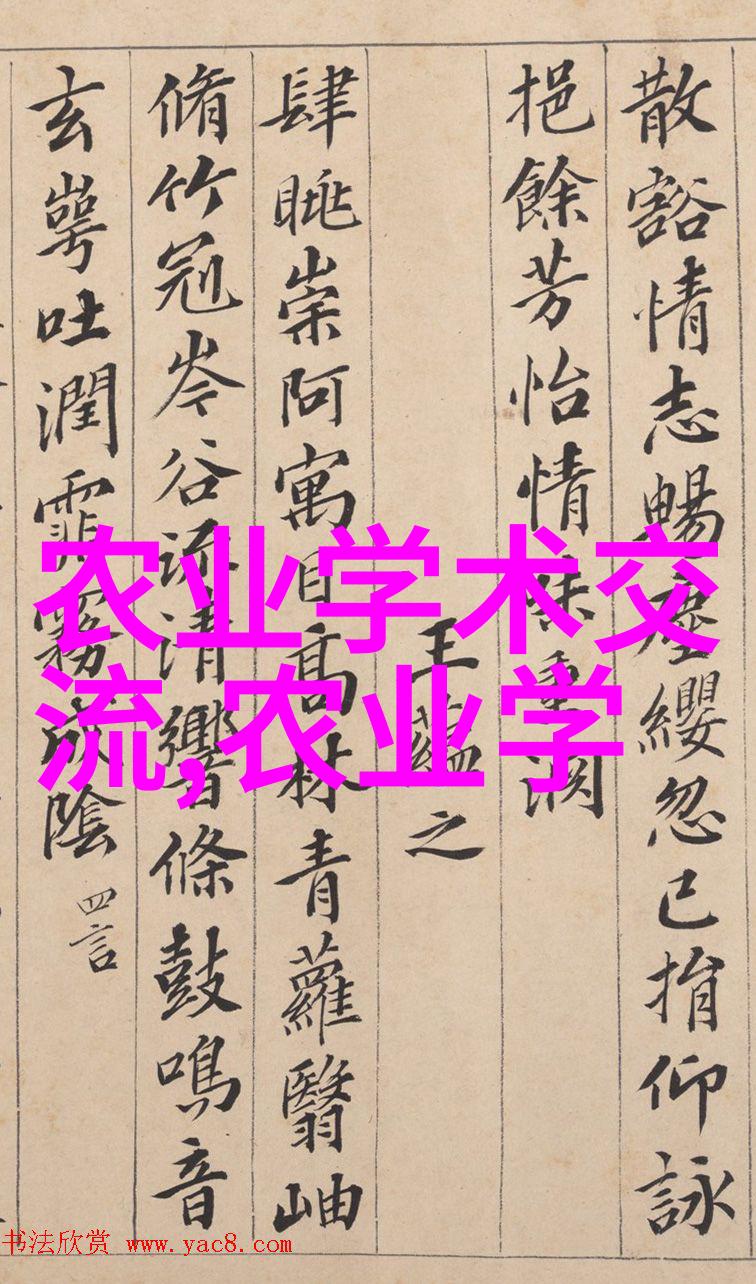 散豁情志暢塵纓忽已捐仰詠
挹餘芳怡情味重淵
王蘊之
肆眺崇阿寓目高林青蘿翳岫
脩竹冠岑谷流清響條鼓鳴音
玄崿吐潤霏霧成陰 四言
农业学术交
流,农业学
书法欣赏 www.yac8.com